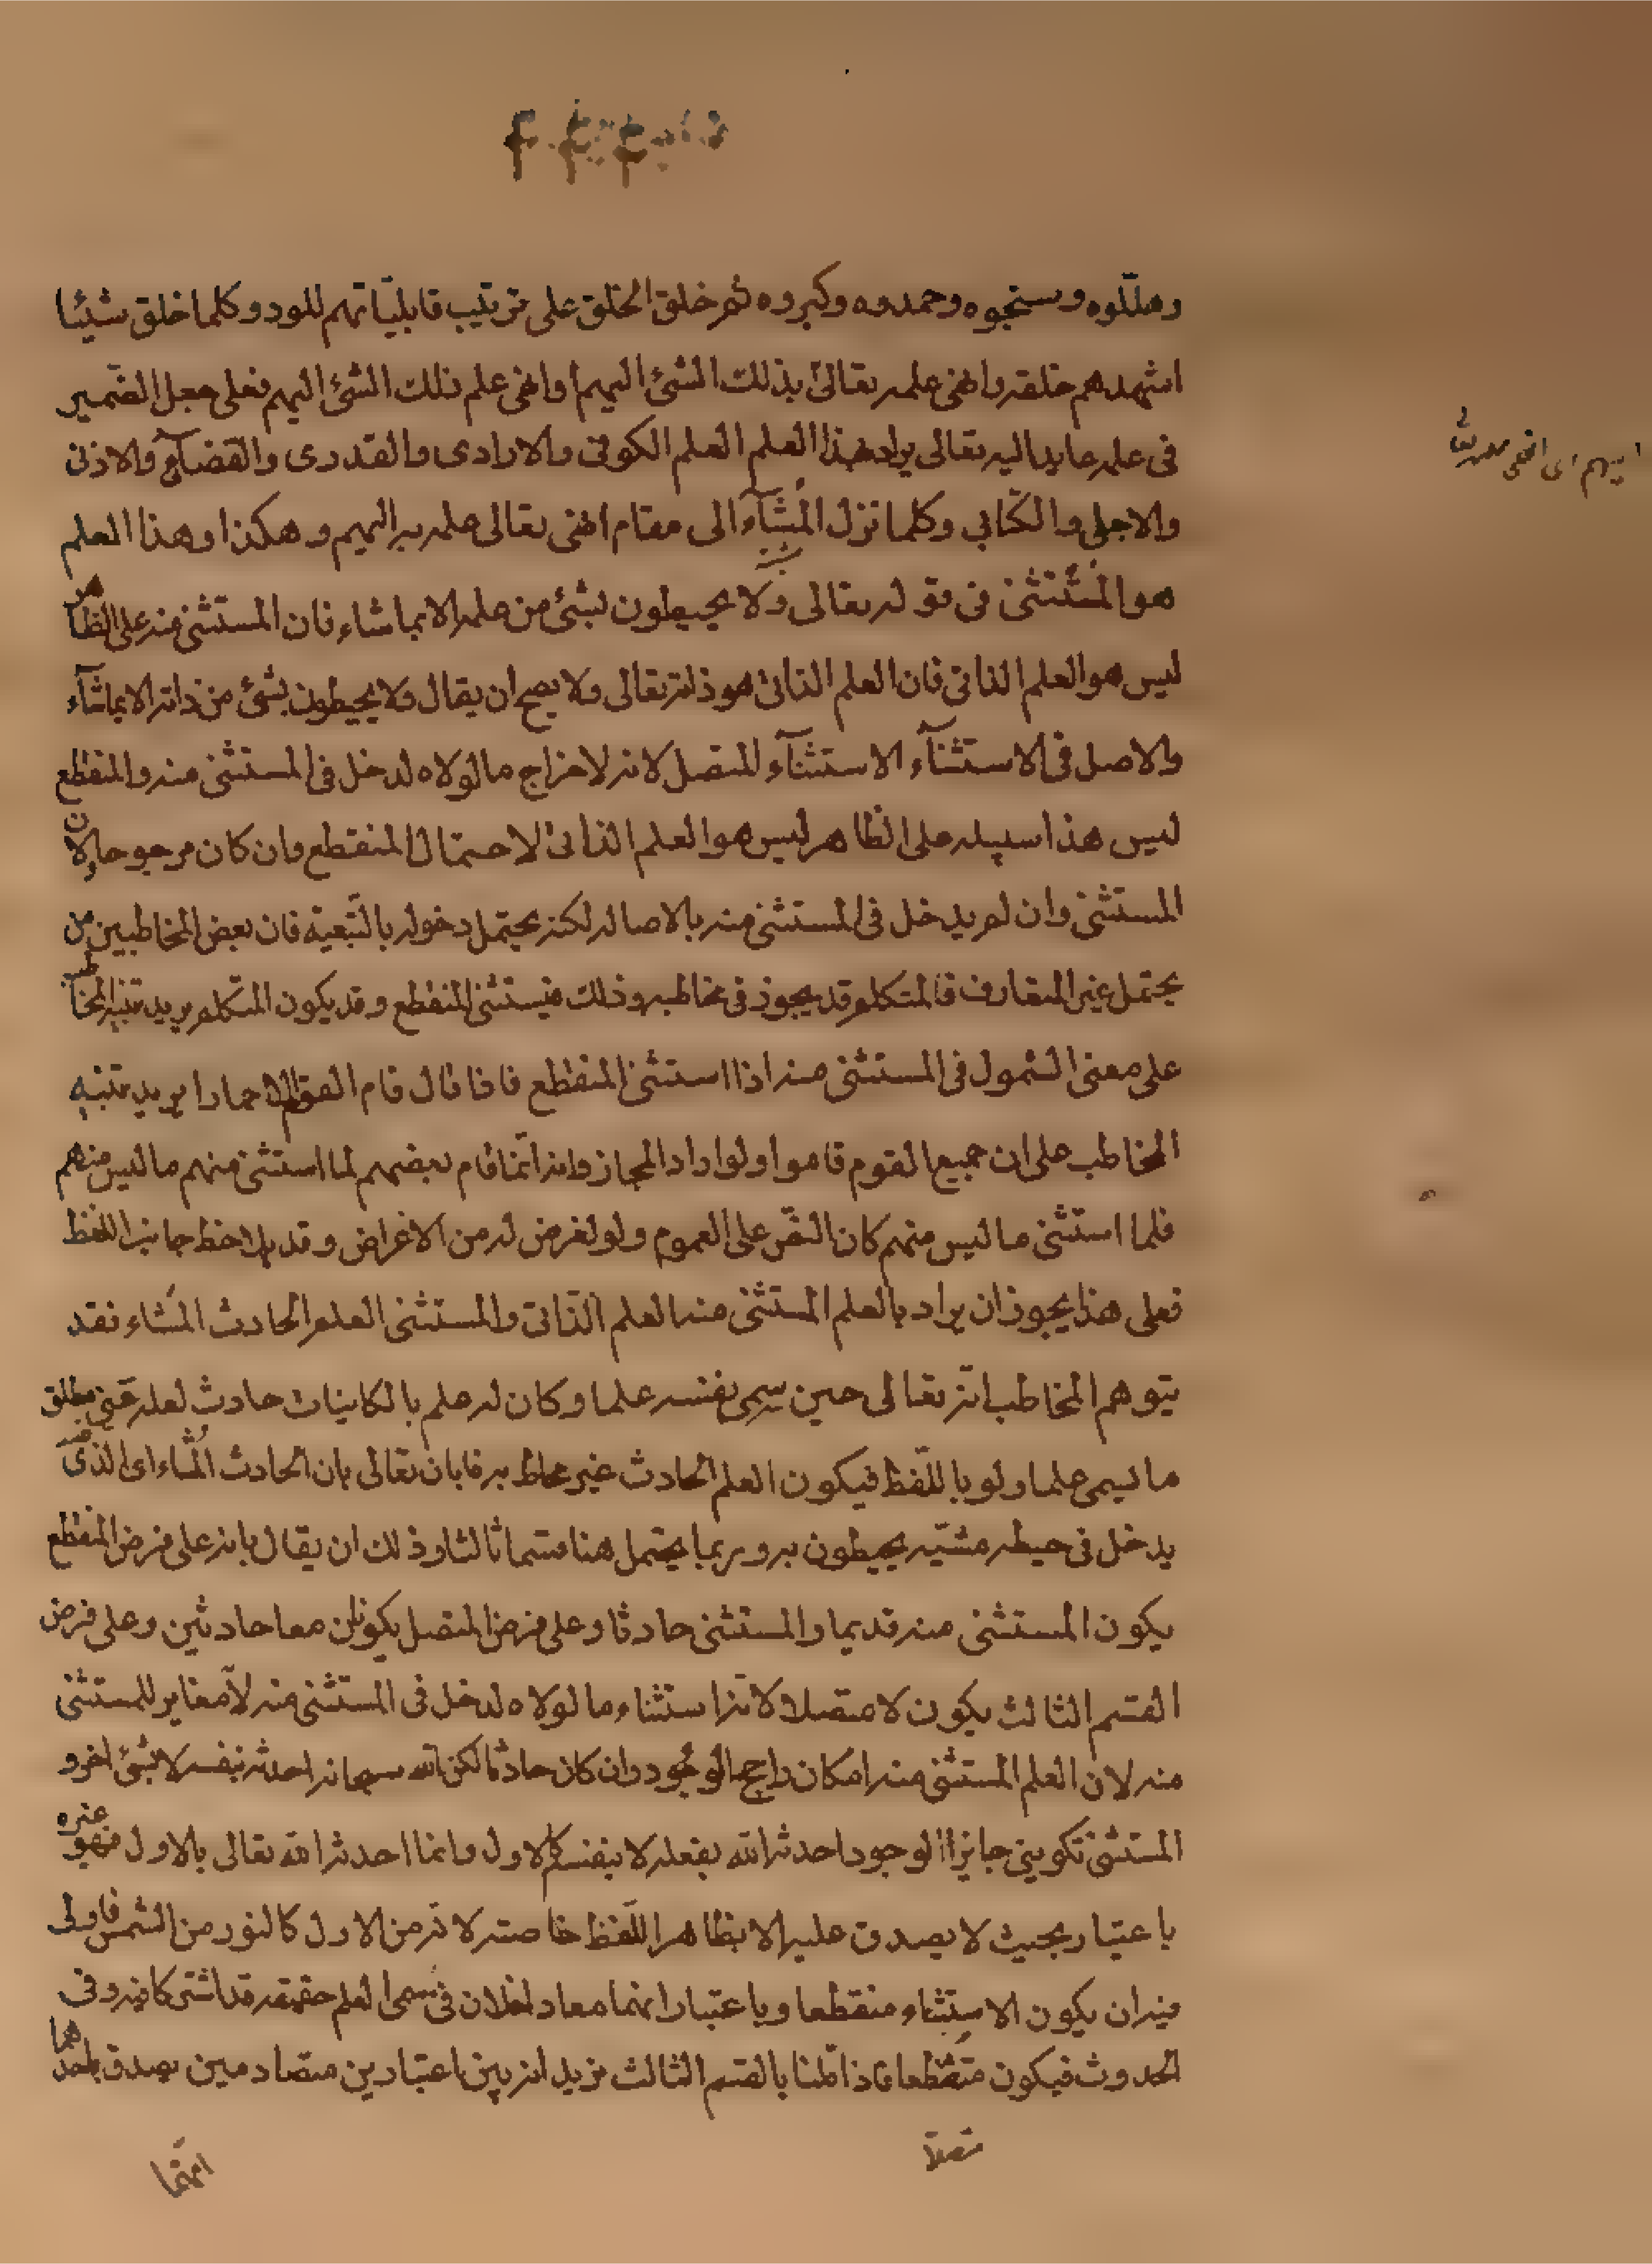 وهللوه وسبحوه وحمدوه وكبروه ثم خلق الخلق على ترتيب قابلياتهم للود وكلما خلق شيئا
اشهدهم خلقه وانهى علمه تعالى بذلك الشئ اليهم او انهى علم ذلك الشئ اليهم فعلى جعل الضمير
فى علمه عايدا اليه تعالى يراد بهذا العلم العلم الكونى والارادى والقدرى والقضائى والاذنى
والاجلى والكتابى وكلما نزل المشآء الى مقام انهى تعالى علمه به اليهم وهكذا وهذا العلم
هو المستثنى فى قوله تعالى ولا يحيطون بشئ من علمه الا بما شاء فان المستثنى منه على الظاهر
ليس هو العلم الذاتى فان العلم الذاتى هو ذاته تعالى ولا يصح ان يقال ولا يحيطون بشئ من ذاته الا بما شآء
والاصل فى الاستثنآء الاستثنآء المتصل لانه لاخراج ما لولاه لدخل فى المستثنى منه والمنقطع
ليس هذا سبيله على الظاهر ليس هو العلم الذاتى لاحتمال المنقطع وان كان مرجوحا ولان
المستثنى وان لم يدخل فى المستثنى منه بالاصاله لكنه يحتمل دخوله بالتبعية فان بعض المخاطبين من
يحتمل غير المتعارف فالمتكلم قد يجوز فى مخاطبه وذلك فيستثنى المنقطع وقد يكون المتكلم يريد تنبيه المخاطب
على معنى الشمول فى المستثنى منه اذا استثنى المنقطع فاذا قال قام القوم الا حمارا يريد تنبيه
المخاطب على ان جميع القوم قاموا ولو اراد المجاز وانه انما قام بعضهم لما استثنى منهم ما ليس منهم
فلما استثنى ما ليس منهم كان النص على العموم ولو لغرض له من الاغراض وقد يلاحظ جانب اللفظ
فعلى هذا يجوز ان يراد بالعلم المستثنى منه العلم الذاتى والمستثنى العلم الحادث المشاء فقد
يتوهم المخاطب انه تعالى حين سمى نفسه علما وكان له علم بالكاينات حادث لعله عنى مطلق
ما يسمى علما ولو باللفظ فيكون العلم الحادث غير محاط به فابان تعالى بان الحادث المشاء اى الذى
يدخل فى حيطه مشيته يحيطون به وربما يحتمل هنا قسما ثالثا وذلك ان يقال بانه على فرض المنقطع
يكون المستثنى منه قديما والمستثنى حادثا وعلى فرض المتصل يكونان معا حادثين وعلى فرض
القسم الثالث يكون لا متصلا لانه استثناء ما لولاه لدخل فى المستثنى منه لانه مغاير للمستثنى
منه لان العلم المستثنى منه امكان راجح الوجود وان كان حادثا لكن الله سبحانه احدثه بنفسه لا بشئ اخر و
المستثنى تكوينى جايز الوجود احدثه الله بفعله لا بنفسه كالاول وانما احدثه الله تعالى بالاول فهو غيره
باعتبار بحيث لا يصدق عليه الا بظاهر اللفظ خاصته لانه من الاول كالنور من الشمس فاولى
فيه ان يكون الاستثناء منقطعا وباعتبار انهما معا داخلان فى مسمى العلم حقيقه قد اشتركا فيه وفى
الحدوث فيكون منقطعا فاذا قلنا بالقسم الثالث نريد انه بين اعتبارين متصادمين يصدق باحدهما
متصلا
اليهم اى انهى علمه تعالى